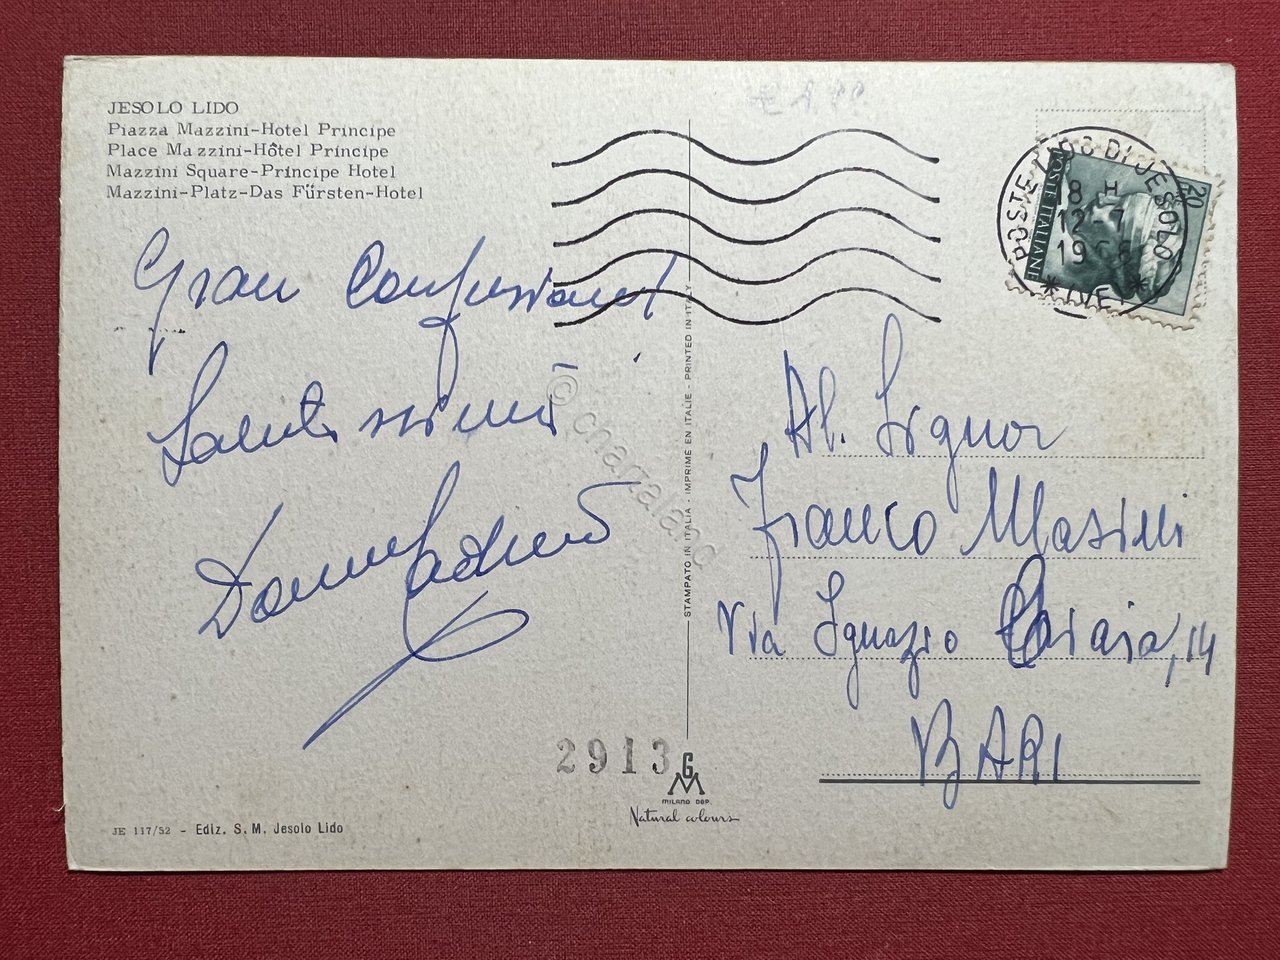 JESOLO LIDO
Piazza Mazzini-Hotel Principe
Place Mazzini-Hôtel Principe
Mazzini Square-Principe Hotel
Mazzini-Platz-Das Fürsten-Hotel
Gran Confusione!
Saluti
POSTE LIDO DI JESOLO
18 H
12-7
1966
* (VE) *
POSTE ITALIANE
20
Al. Signor
Franco Masini
Via Ignazio 14
BARI
STAMPATO IN ITALIA - IMPRIME EN ITALIE - PRINTED IN ITALY
© charzalasc
2913
G
M
MILANO DEP.
Natural colours
JE 117/52 - Ediz. S. M. Jesolo Lido